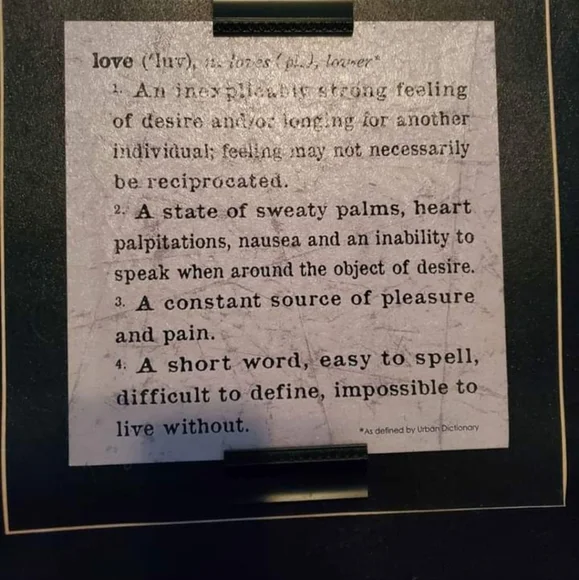 love ('luv), n. loves (pl.), lower*
1. An inexplicably strong feeling
of desire and/or longing for another
individual; feeling may not necessarily
be reciprocated.
2. A state of sweaty palms, heart
palpitations, nausea and an inability to
speak when around the object of desire.
3. A constant source of pleasure
and pain.
4. A short word, easy to spell,
difficult to define, impossible to
live without.
*As defined by Urban Dictionary